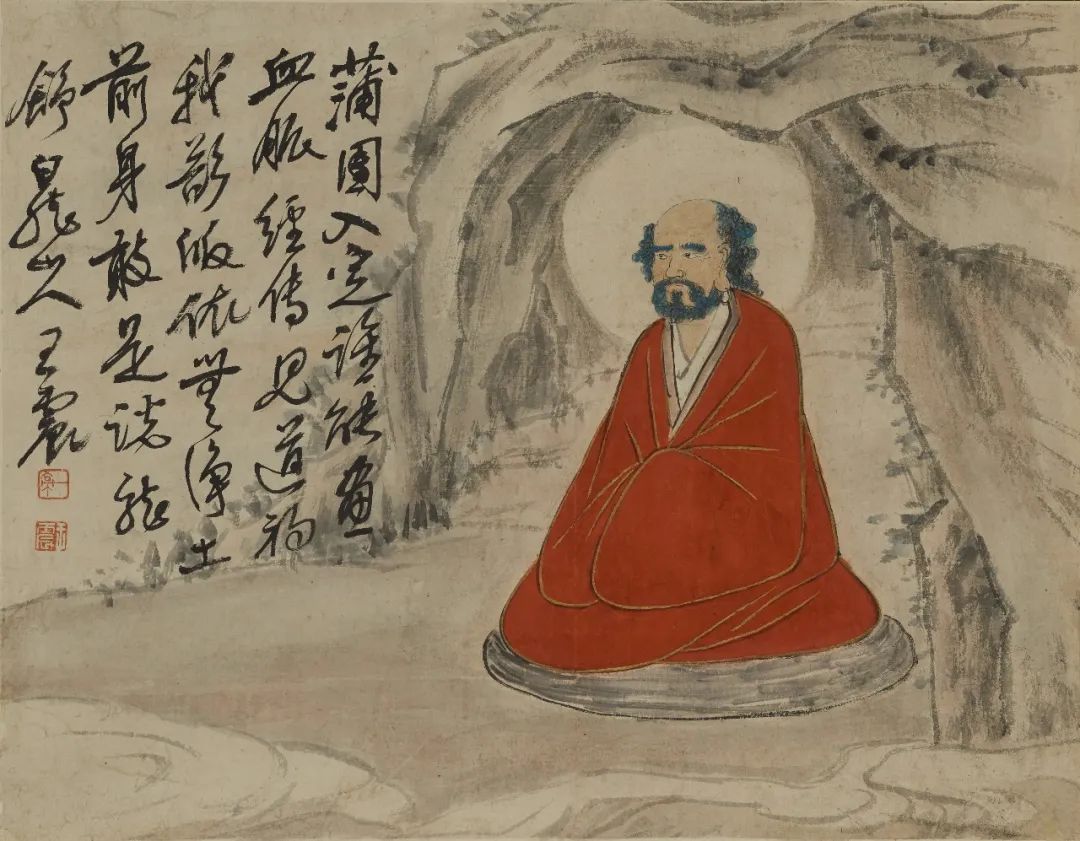 蒲團入定誰能畫
血脈經傳見道初
我欲皈依無淨土
前身敢是龍
舒 白龍山人 王震
一亭
王震